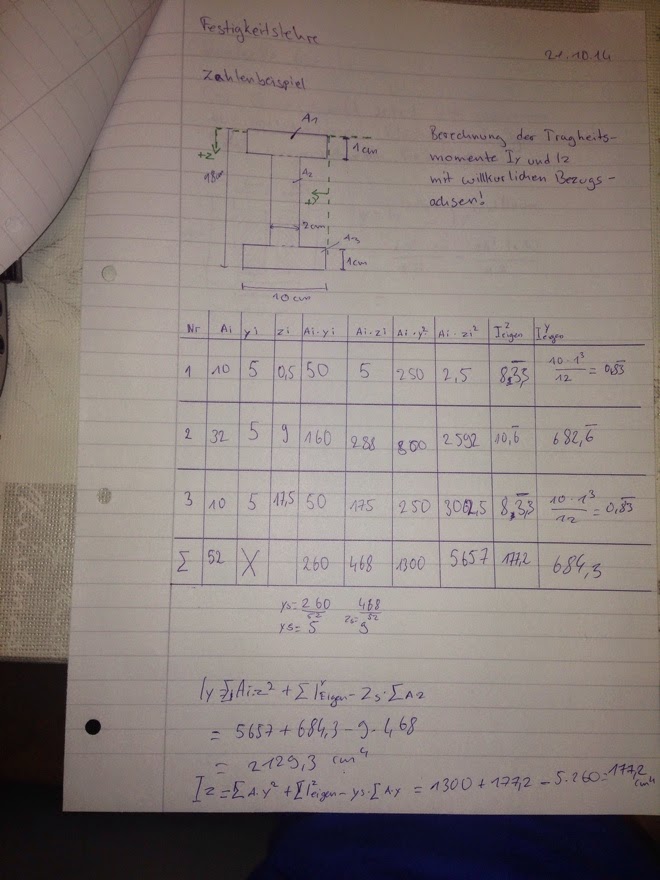 Festigkeitslehre
21.10.14
Zahlenbeispiel
A1
1cm
+z
18cm
A2
+y
2cm
A3
1cm
10cm
Berechnung der Tragheits-
momente Iy und Iz
mit willkurlichen Bezugs-
achsen!
Nr Ai yi zi Ai·yi Ai·zi Ai·y² Ai·zi² I^z eigen I^y eigen
1 10 5 0,5 50 5 250 2,5 10·1³/12 = 0,83
2 32 5 9 160 288 800 2592 10,6 682,6
3 10 5 17,5 50 175 250 3062,5 10·1³/12 = 0,83
Σ 52 X 260 468 1300 5657 177,2 684,3
ys = 260/52 zs = 468/52
ys = 5 9
Iy = Σ Ai z² + Σ I^y Eigen - Zs · Σ Az
= 5657 + 684,3 - 9 · 468
= 2129,3 cm⁴
Iz = Σ A·y² + Σ I^z eigen - ys · Σ Ay = 1300 + 177,2 - 5·260 = 177,2 cm⁴